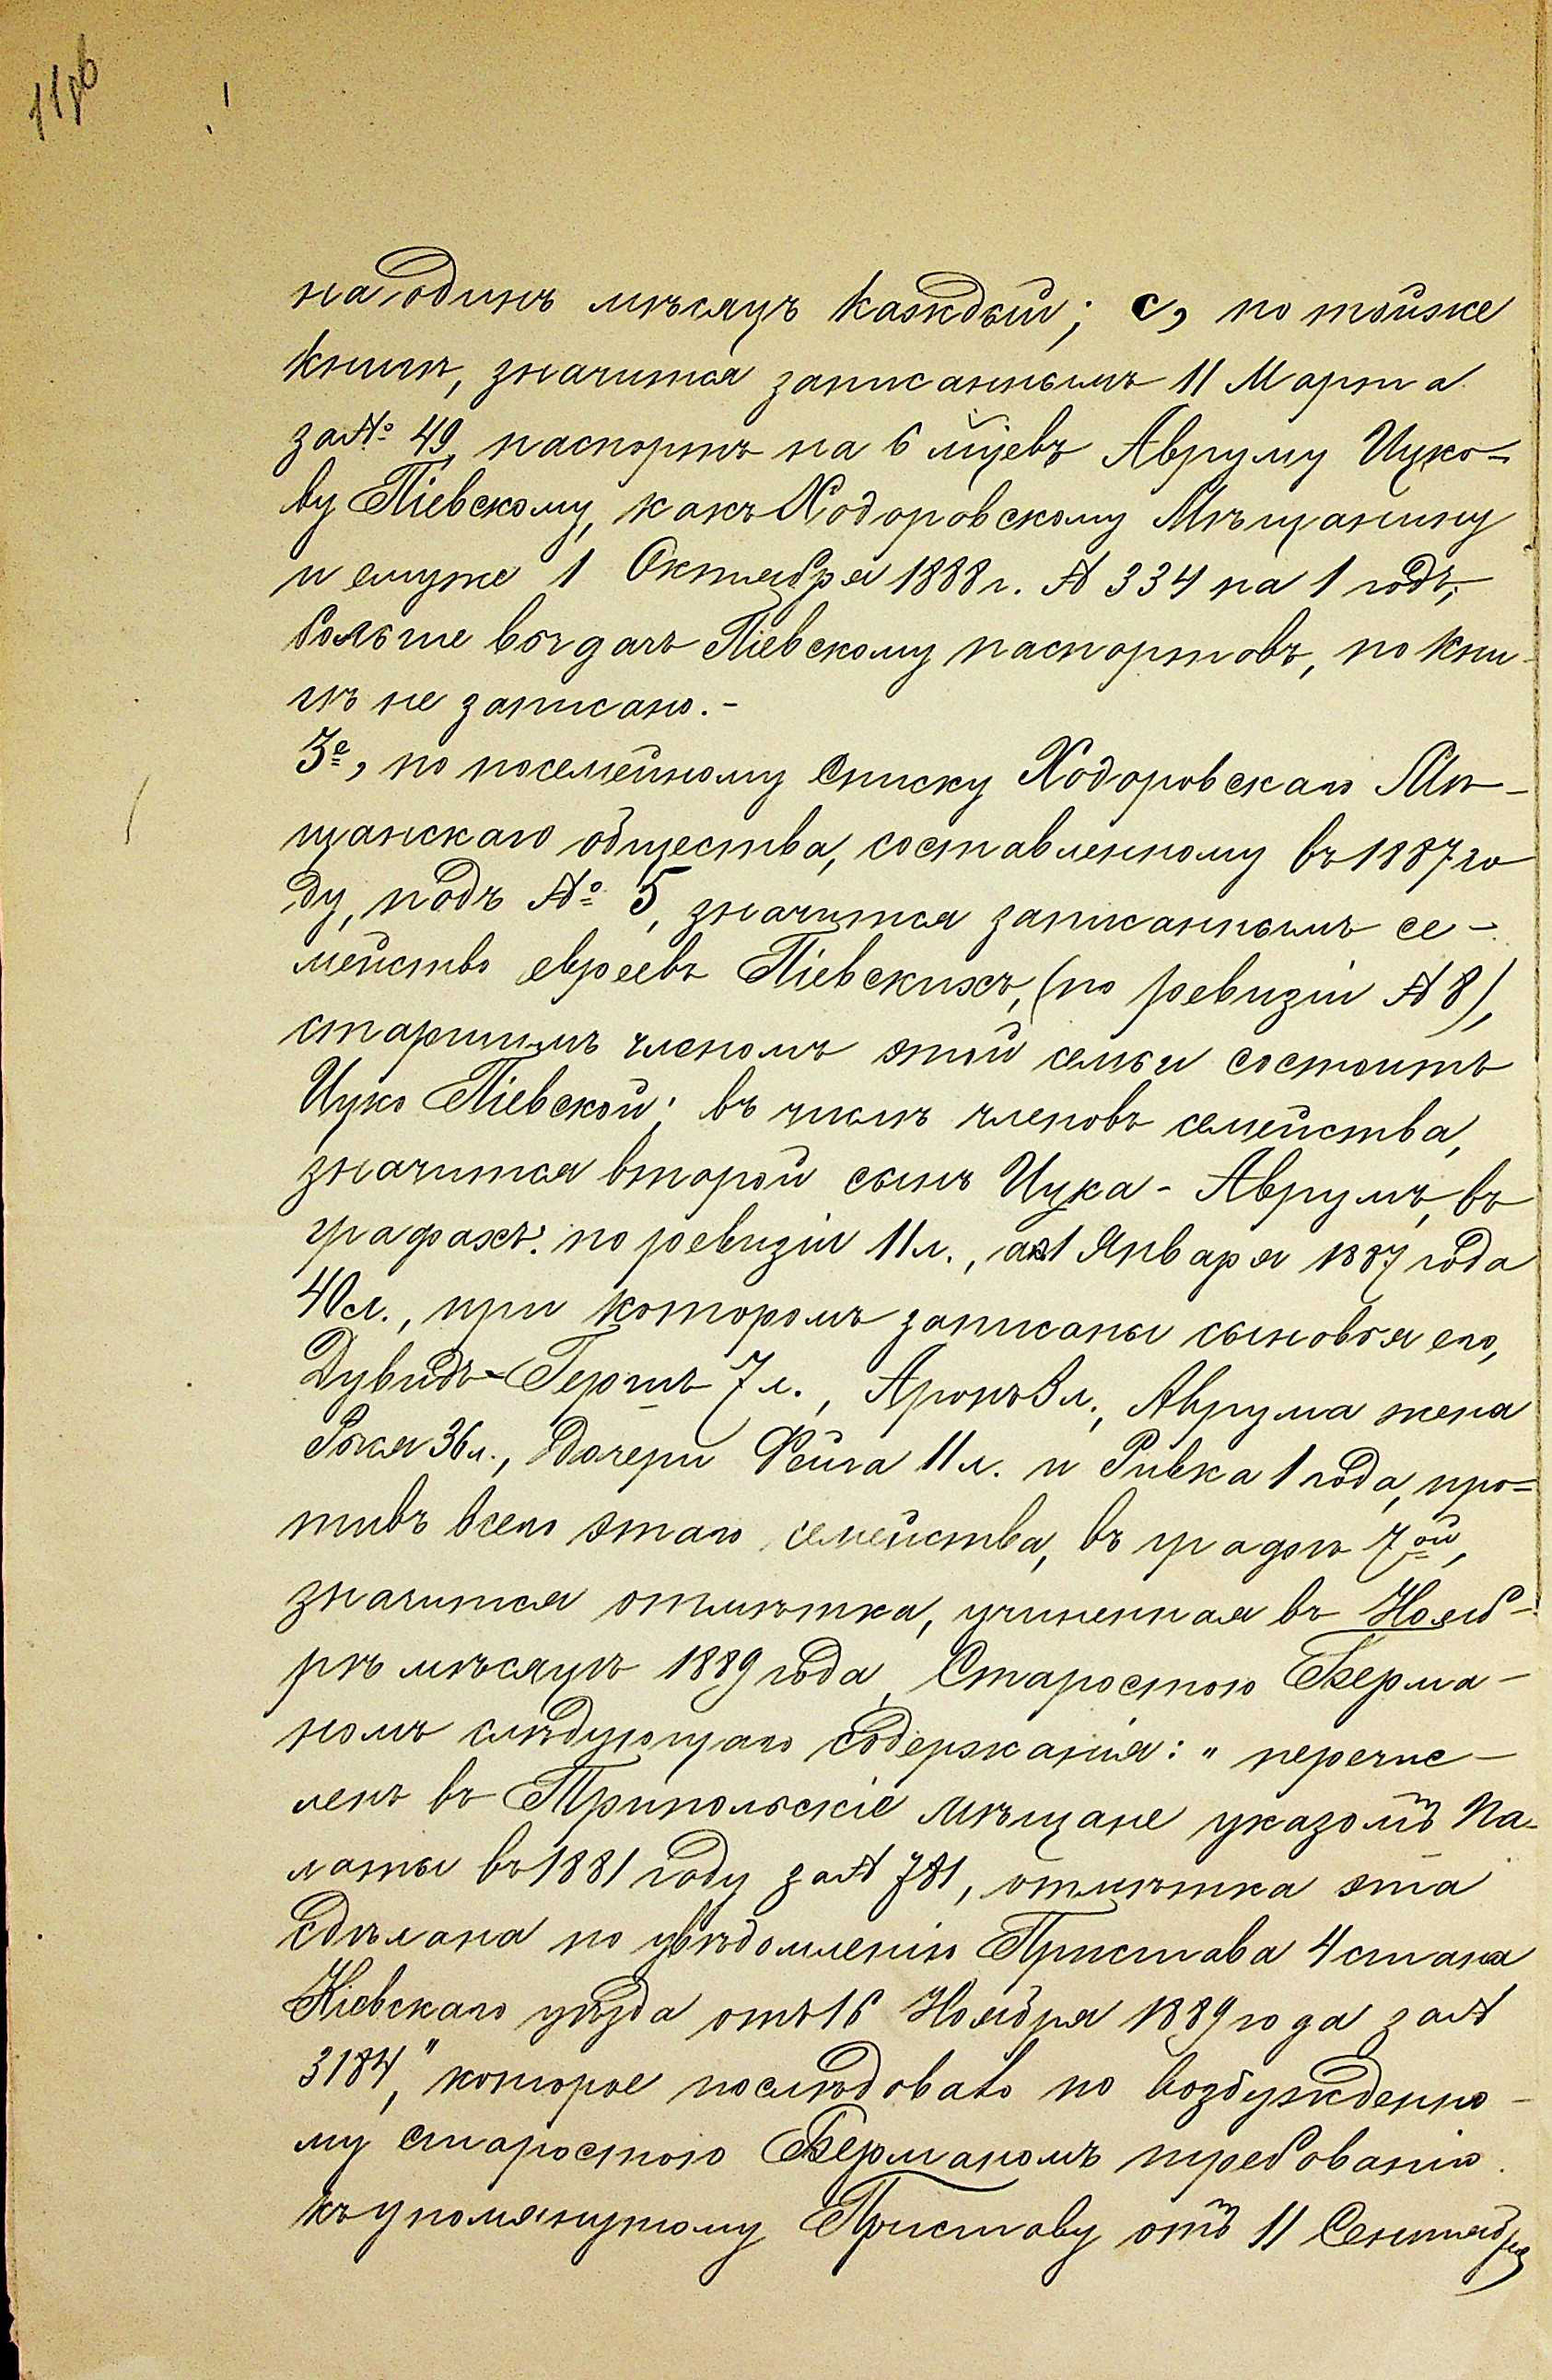 на одинъ мѣсяцъ каждый; с, по той же
книгѣ, значится записаннымъ 11 Марта
за № 49, паспортъ на 6 мцевъ Авруму Ицко-
ву Пiевскому, какъ Ходоровскому Мѣщанину
и ему же 1 Октября 1888 г. № 334 на 1 годъ;
больше выдачъ Пiевскому паспортовъ, по кни-
гѣ не записано.-
3е, по посемейному списку Ходоровскаго Мѣ-
щанскаго общества, составленному въ 1887 го
ду, подъ № 5, значится записаннымъ се-
мейство евреевъ Пiевскихъ, (по ревизiи № 8),
старшимъ членомъ этой семьи состоитъ
Ицко Пiевской; въ числѣ членовъ семейства,
значится второй сынъ Ицка - Аврумъ, въ
графахъ: по ревизiи 11 л., а къ 1 Января 1887 года
40 л., при которомъ записаны сыновья его,
Дувидъ-Гершъ 7 л., Аронъ 3 л., Аврума жена
36 л., дочери Фейга 11 л. и Ривка 1 года, про=
тивъ всего этаго семейства, въ графѣ 7ой,
значится отмѣтка, учиненная въ Нояб-
рѣ мѣсяцѣ 1889 года, Старостою Берма-
номъ слѣдующаго содержанiя: „перечис-
ленъ въ Трипольскiе мѣщане указомъ Па-
латы въ 1881 году за № 781, отмѣтка эта
сдѣлана по увѣдомленiю Пристава 4 стана
Кiевскаго уѣзда отъ 16 Ноября 1889 года за №
3184," которое послѣдовало по возбужденно-
му старостою Берманомъ требованiю
къ упомянутому Приставу отъ 11 Сентября